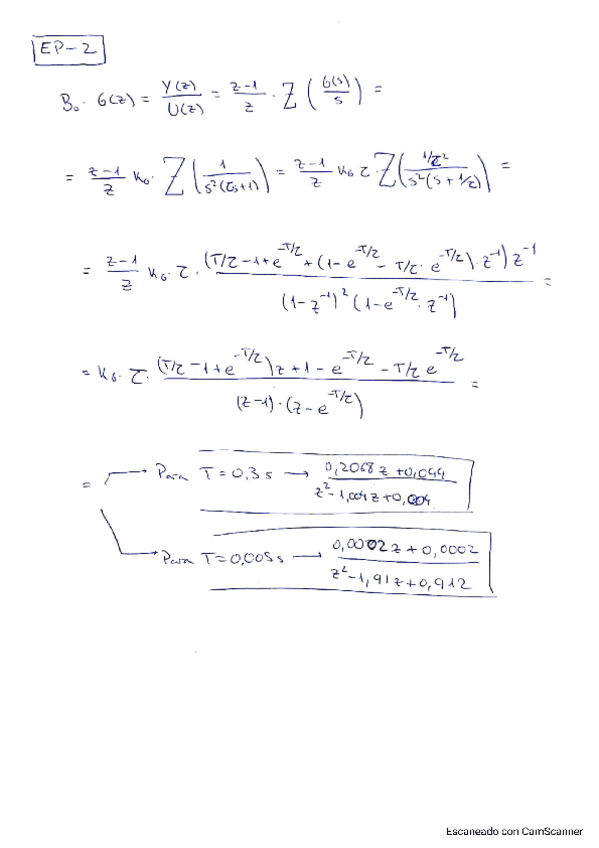 EP-2
B₀·G(z) = Y(z)/U(z) = z-1/z · Z(G(s)/s) =
= z-1/z K₆· Z(1/s²(τs+1)) = z-1/z K₆ τ · Z(1/τ²/s²(s+1/τ)) =
= z-1/z K₆·τ· (T/τ-1+e^-T/τ+(1-e^-T/τ - T/τ·e^-T/τ)·z⁻¹)z⁻¹/(1-z⁻¹)²(1-e^-T/τ·z⁻¹) =
= K₆·τ· (T/τ-1+e^-T/τ)z+1-e^-T/τ-T/τ e^-T/τ/(z-1)·(z-e^-T/τ) =
= → Para T=0,3 s → 0,2068z+0,044/z²-1,004z+0,004
→ Para T=0,005 s → 0,0002z+0,0002/z²-1,91z+0,912
Escaneado con CamScanner